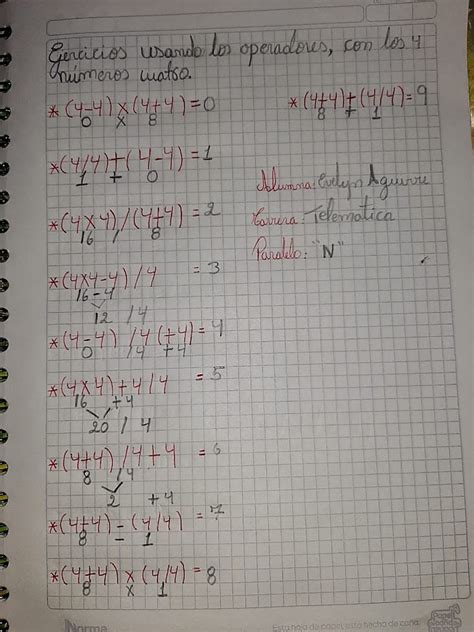 Ejercicios usando los operadores, con los 4
números cuatro.
*(4-4)x(4+4)=0
0 x 8
*(4+4)+(4/4)=9
8 + 1
*(4/4)+(4-4)=1
1 + 0
Alumna: Evelyn Aguirre
*(4x4)/(4+4)=2
16 / 8
Carrera: Telematica
Paralelo: "N"
*(4x4-4)/4 =3
16-4
12 /4
*(4-4) /4 (+4)=4
0 /4 +4
*(4x4)+4/4 =5
16 +4
20 / 4
*(4+4)/4+4 =6
8 /4
2 +4
*(4+4)-(4/4)=7
8 - 1
*(4+4)x(4/4)=8
8 x 1
Norma
Esta hoja de papel, esta hecha de caña